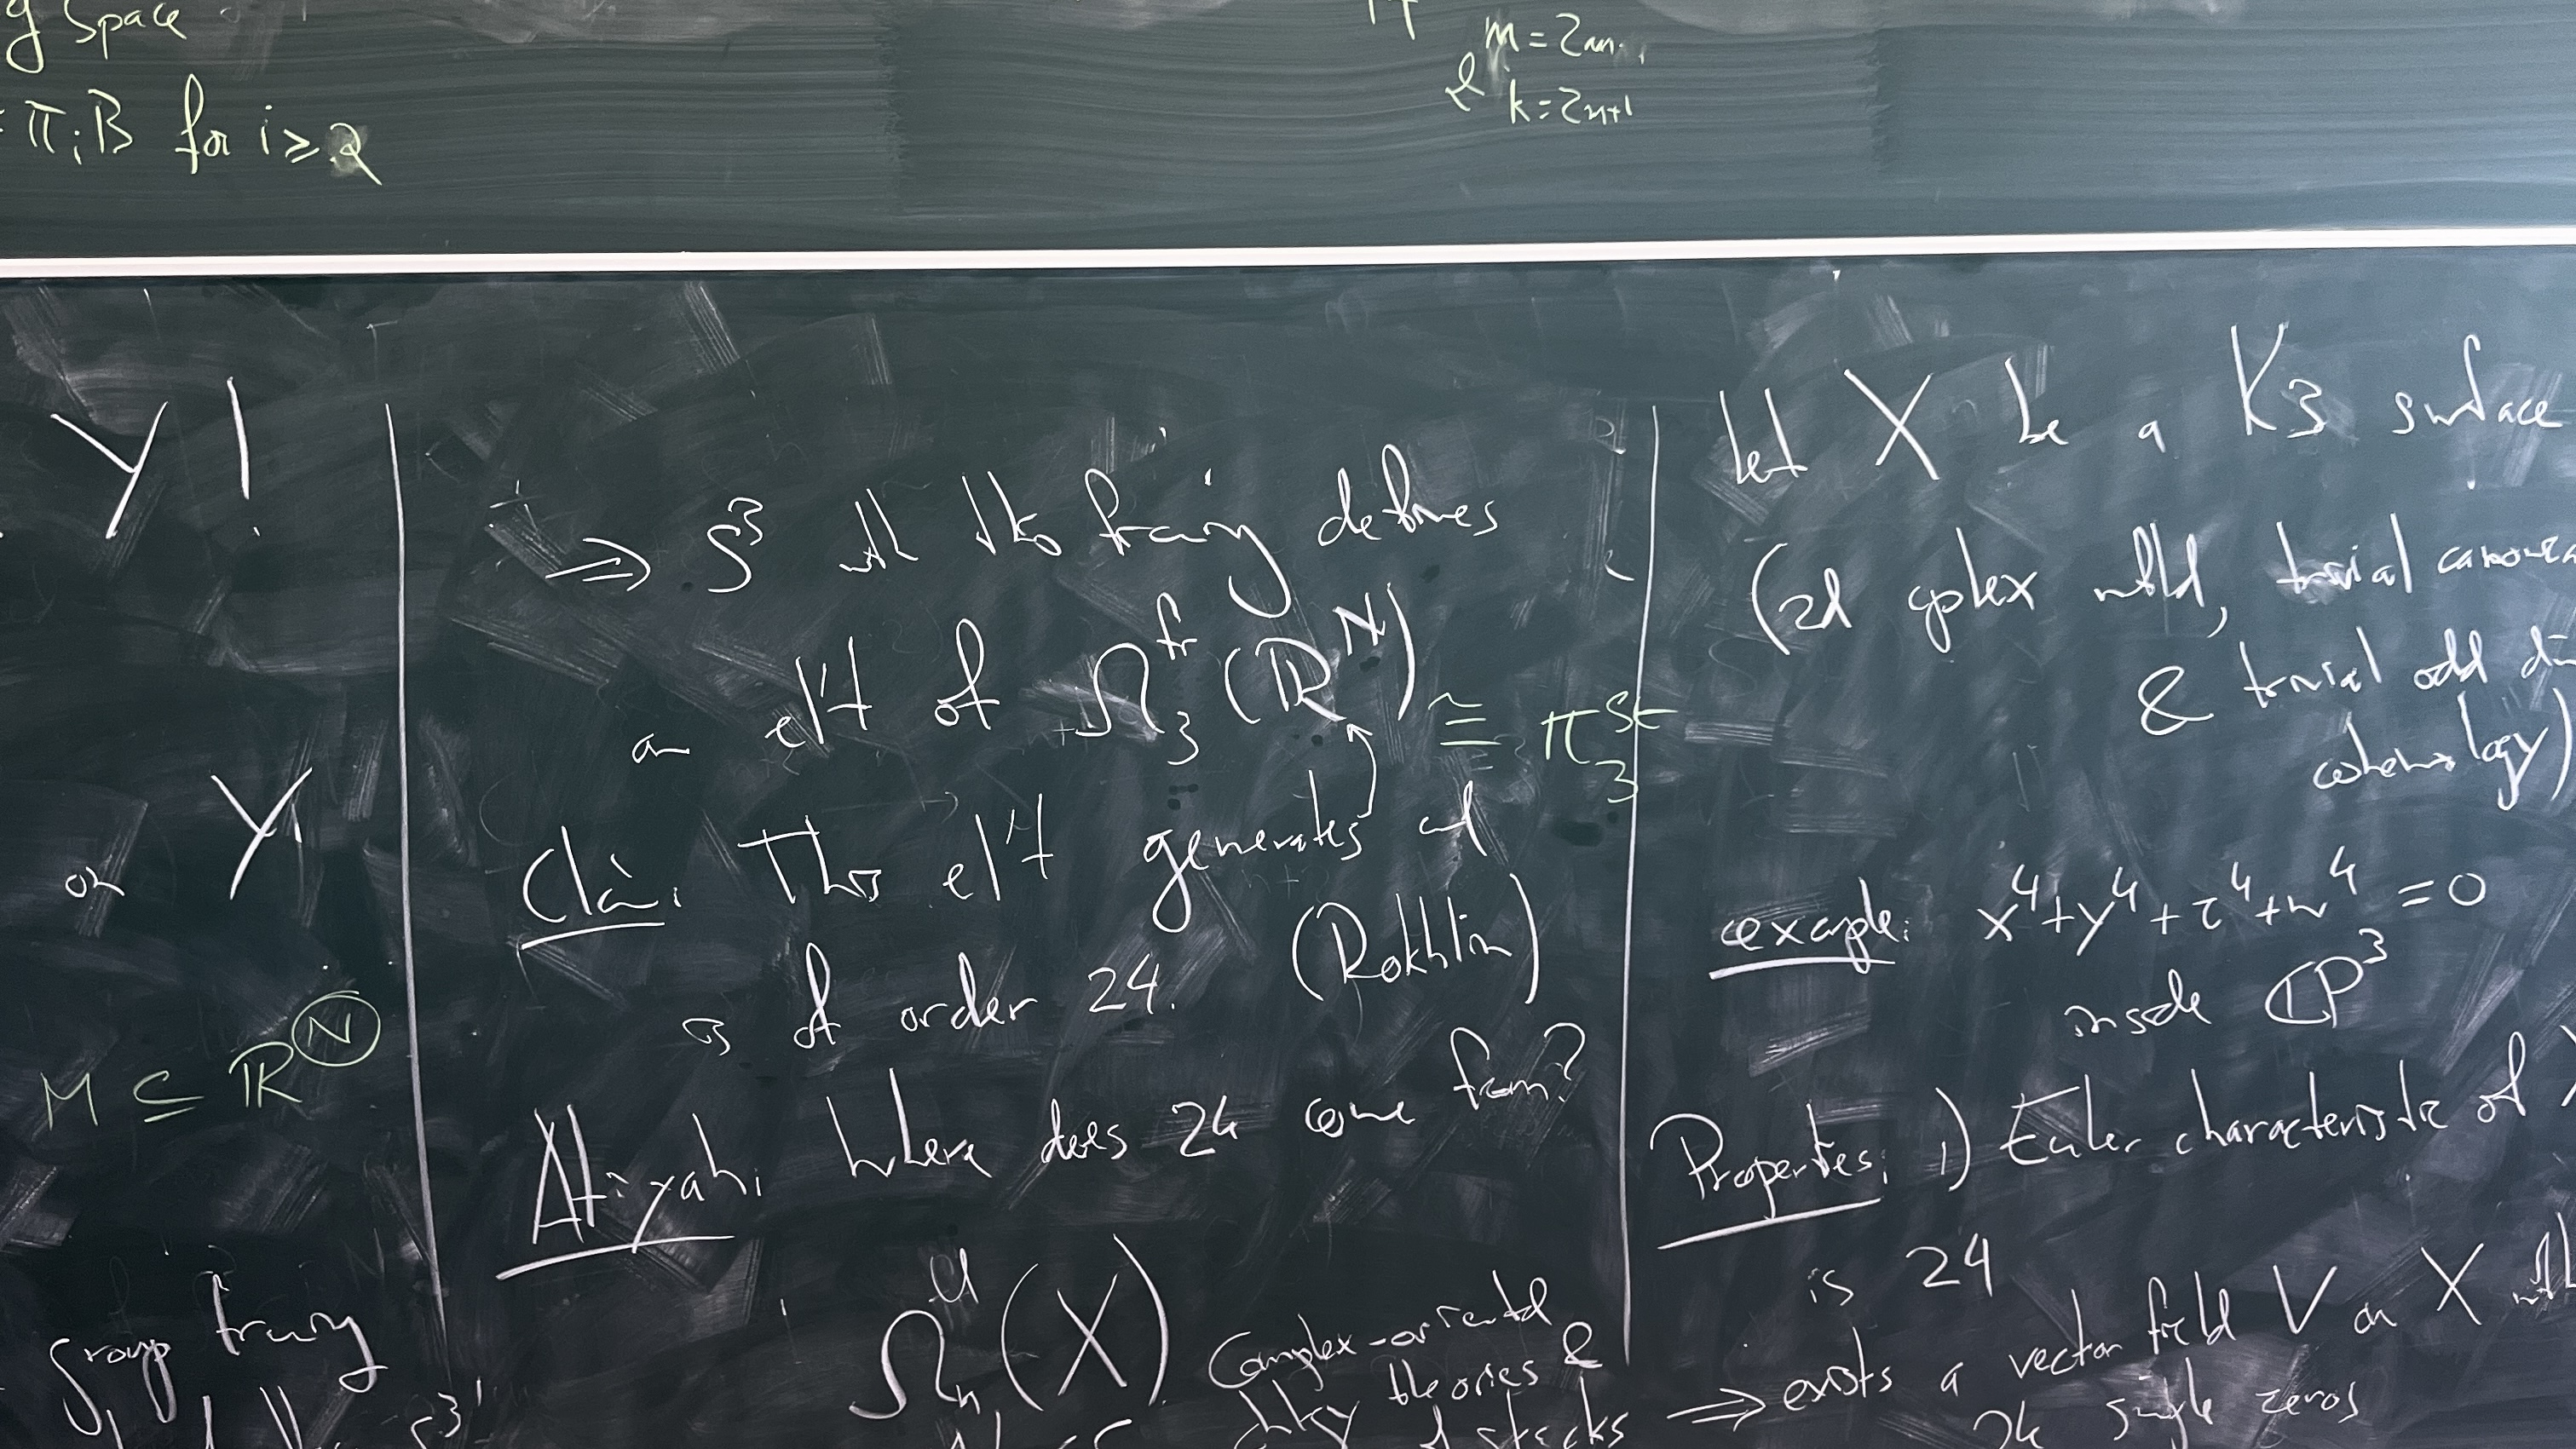 g space
= π_i B for i ≥ 2
m = 2m,
& k = 2n+1
Y!
on Y
M ⊆ ℝ^N
group framing
S^3
⇒ S^3 with this framing defines
an el't of Ω_3^fr (ℝ^N) ≅ π_3^st
Claim. This el't generates and
is of order 24. (Rokhlin)
Atiyah: Where does 24 come from?
Ω_n^U (X) Complex-oriented
theories &
stacks
Let X be a K3 surface
(2d cplex mfld, trivial canonica
& trivial odd di
cohomology)
example: x^4 + y^4 + z^4 + w^4 = 0
inside ℂP^3
Properties: 1) Euler characteristic of X
is 24
⇒ exists a vector field V on X with
24 simple zeros